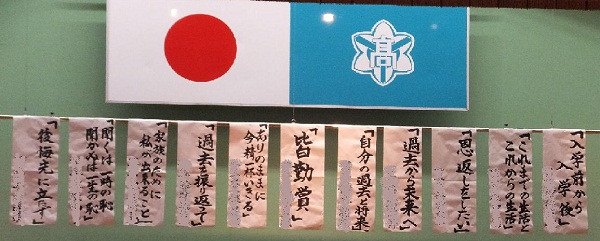 高
「入学前から
入学後」
「これまでの生活と
これからの生活」
「恩返しをしたい」
「過去から未来へ」
「自分の過去と将来」
「皆勤賞」
「ありのままに
今精一杯いきる」
「過去を振り返って」
「家族のために
私の出来ること」
「聞くは一時の恥
聞かぬは一生の恥」
「後悔先に立たず」